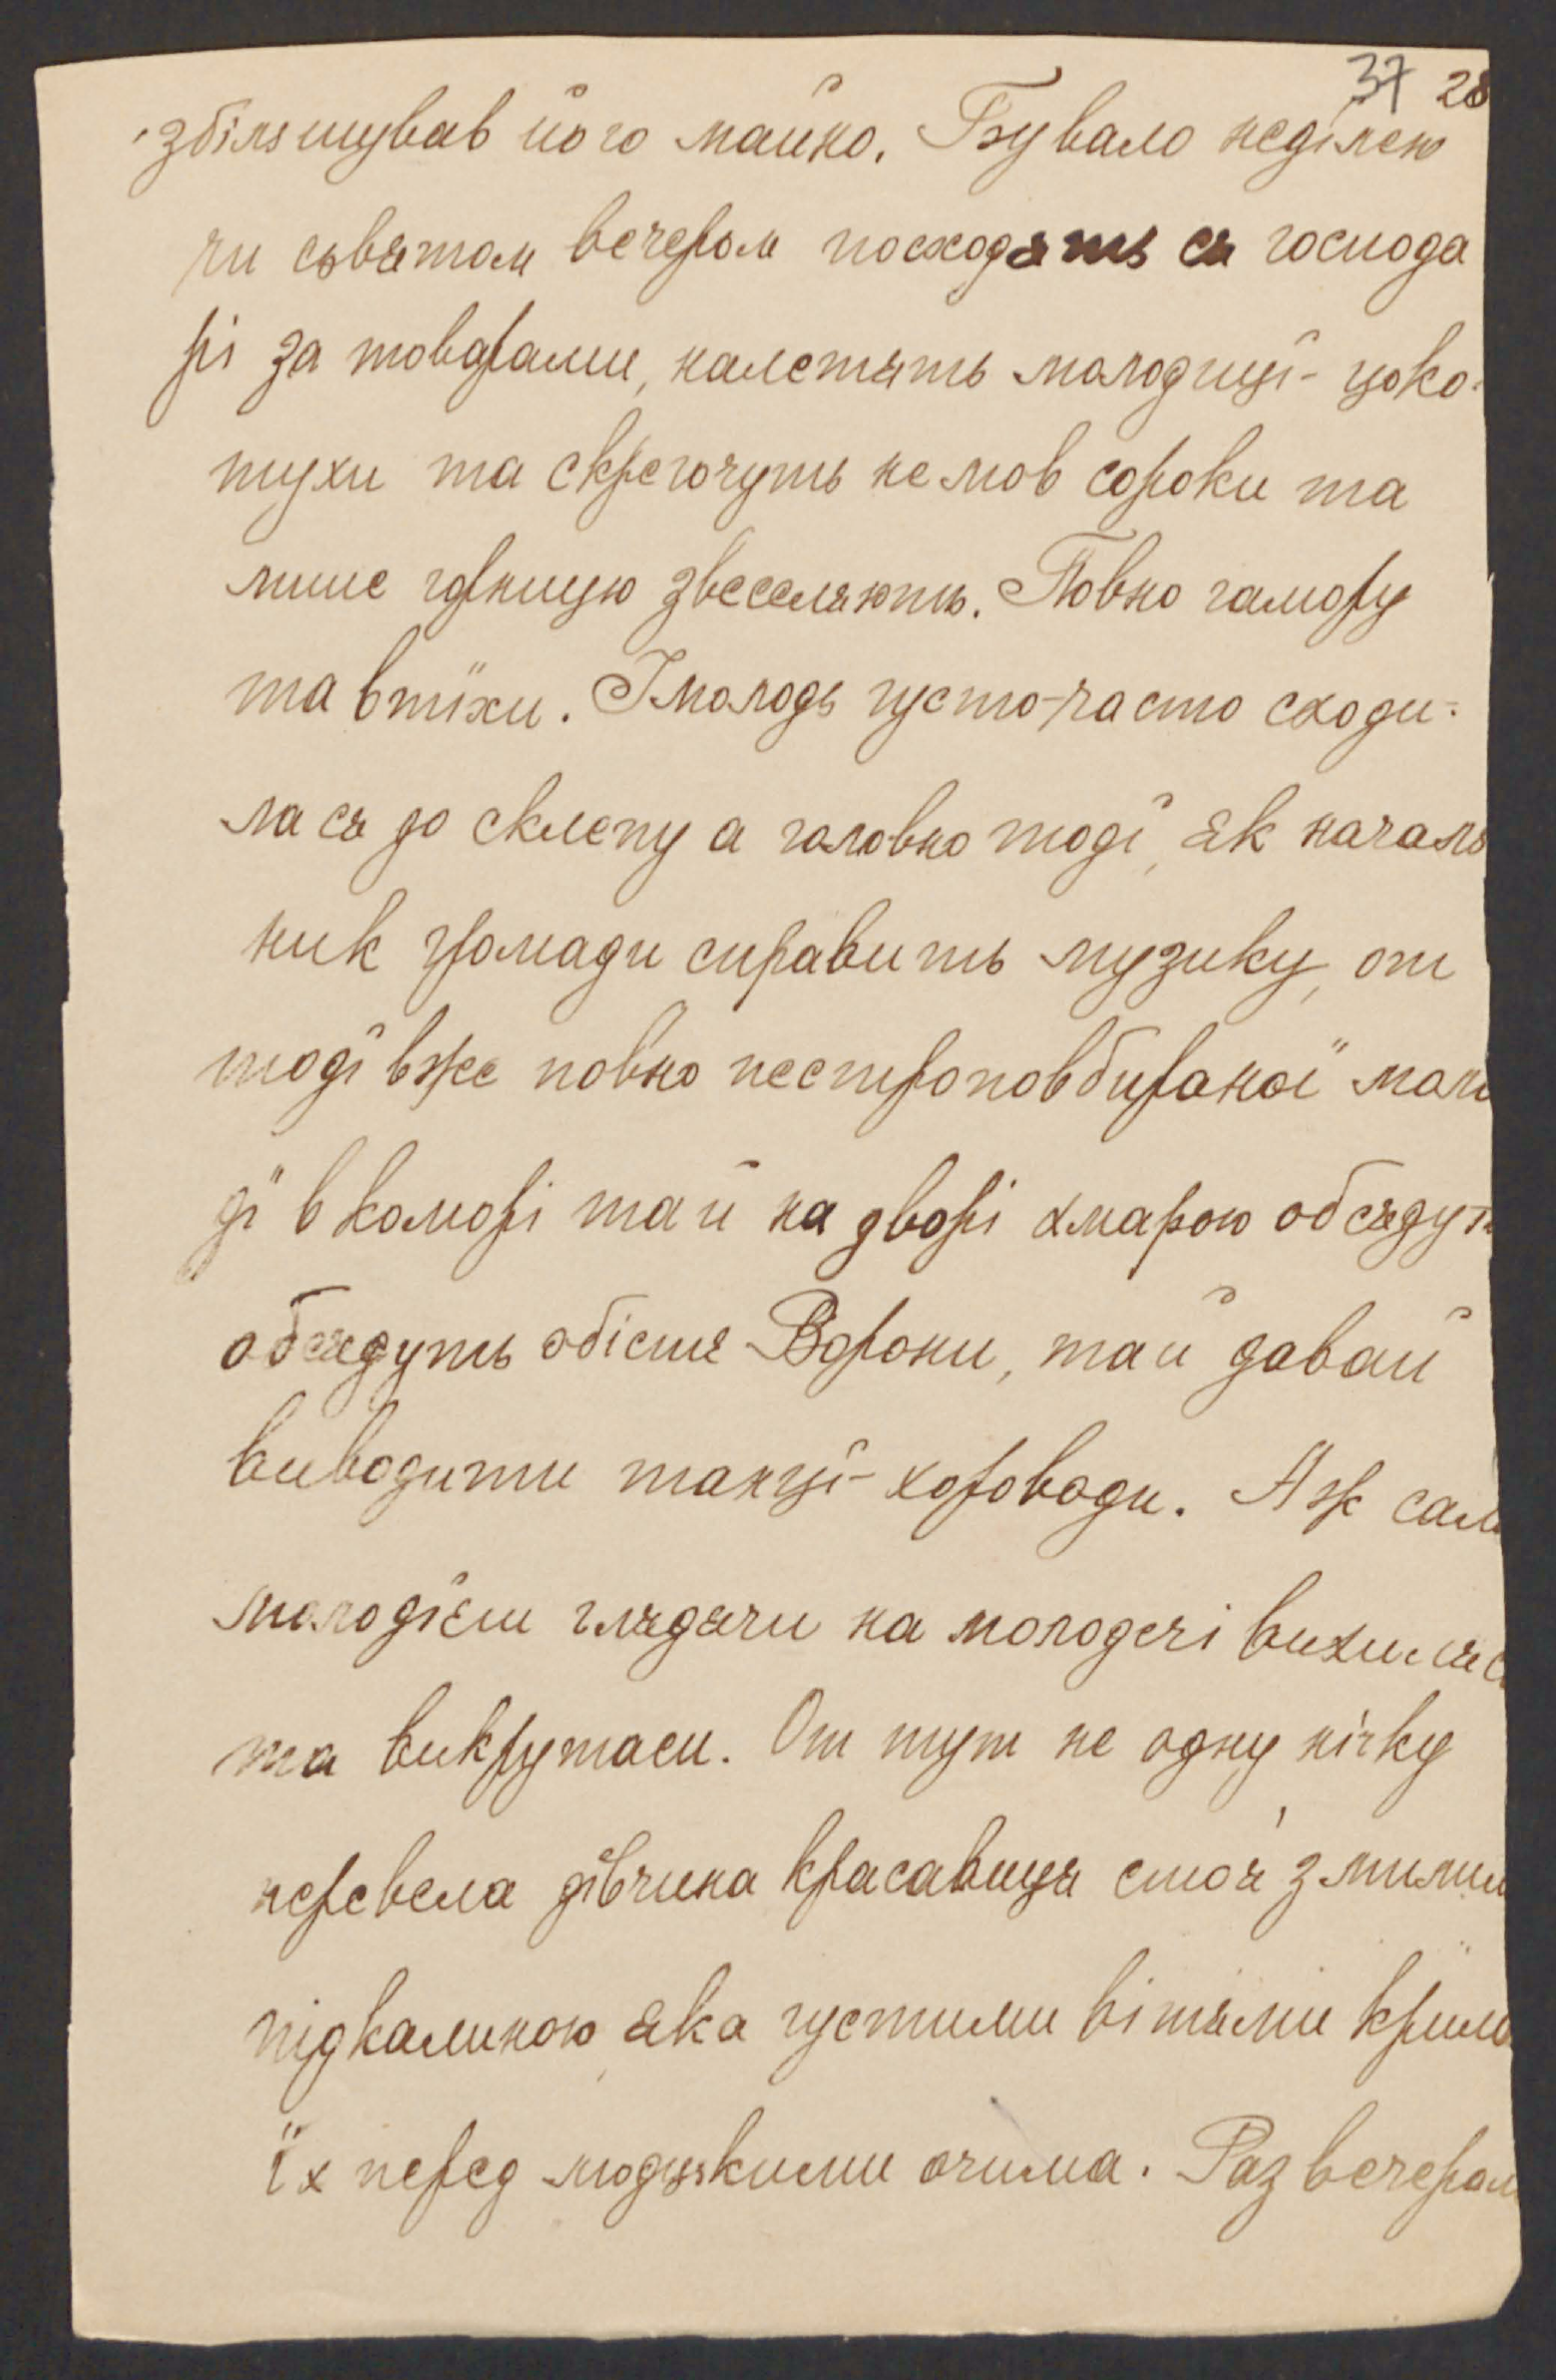 37 28
збільшував його майно. Бувало неділею
чи сьвятом вечером посходять ся господа
рі за товарами, налетять молодиці- цоко-
тухи та скрегочуть не мов сороки та
лише горницю звеселяють. Повно гамору
та втіхи. І молодь густо-часто сходи-
ла ся до склепу а головно тоді, як началь
ник громади справить музику, от
тоді вже повно пестроповбираної моло
ді в коморі тай на дворі хмарою обсядут
обсядуть обістя Ворони, тай давай
виводити танці- хороводи. Аж сам
молодієш глядячи на молодечі вихиляс
та викрутаси. От тут не одну нічку
перевела дівчина красавиця стоя з милим
під калиною, яка густими вітями крила
їх перед людзькими очима. Раз вечером